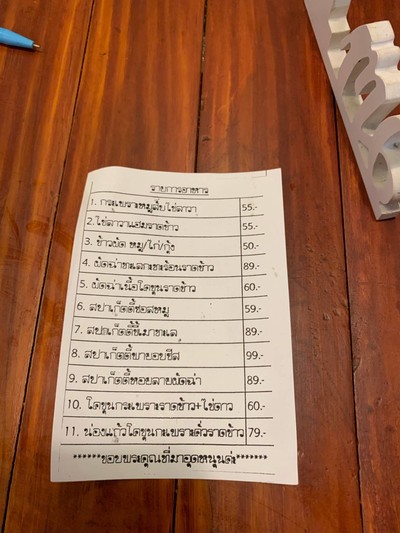 รายการอาหาร
1. กระเพราะหมูสับไข่ลาวา 55.-
2.ไข่ลาวาแฮมราดข้าว 55.-
3. ข้าวผัด หมู/ไก่/กุ้ง 50.-
4. ผัดฉ่าทะเลกะทะร้อนราดข้าว 89.-
5. ผัดฉ่าเนื้อโคขุนราดข้าว 60.-
6. สปาเก็ตตี้ซอสหมู 59.-
7. สปเก็ตตี้ขี้เมาทะเล 89.-
8. สปาเก็ตตี้ขาอบชีส 99.-
9. สปาเก็ตตี้หอยลายผัดฉ่า 89.-
10. โคขุนกระเพราะราดข้าว+ไข่ดาว 60.-
11. น่องแก้วโคขุนกะเพราะคั่วราดข้าว 79.-
******ขอบพระคุณที่มาอุดหนุนค่ะ******